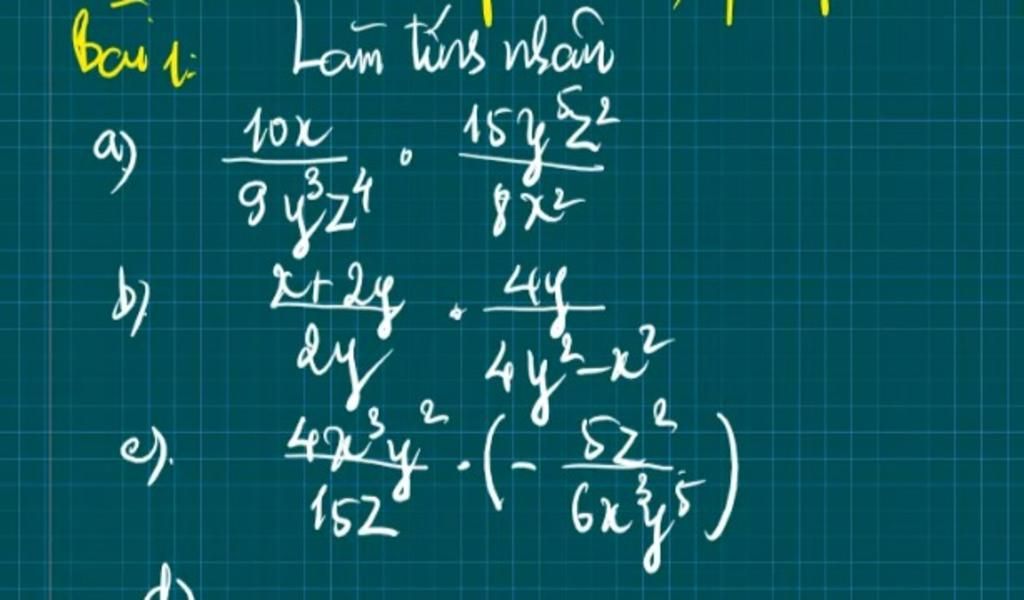 Bài 1: Làm tính nhân
a) 10x/9y³z⁴ · 15y⁵z²/8x²
b) x+2y/2y · 4y/4y²-x²
c) 4x³y²/15z · (- 5z²/6x³y⁵)
d)